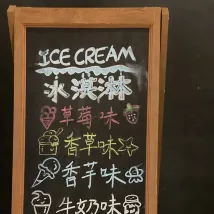 ICE CREAM
冰淇淋
草莓味
香草味
香芋味
牛奶味